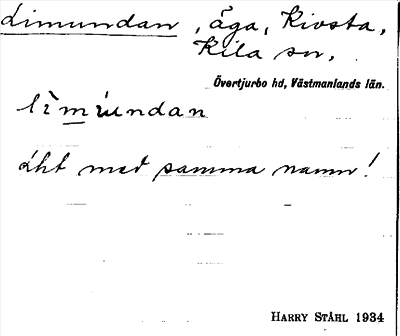 Limundan, äga, Kivsta,
Kila sn,
Övertjurbo hd, Västmanlands län.
limundan
med samma namn!
HARRY STÅHL 1934